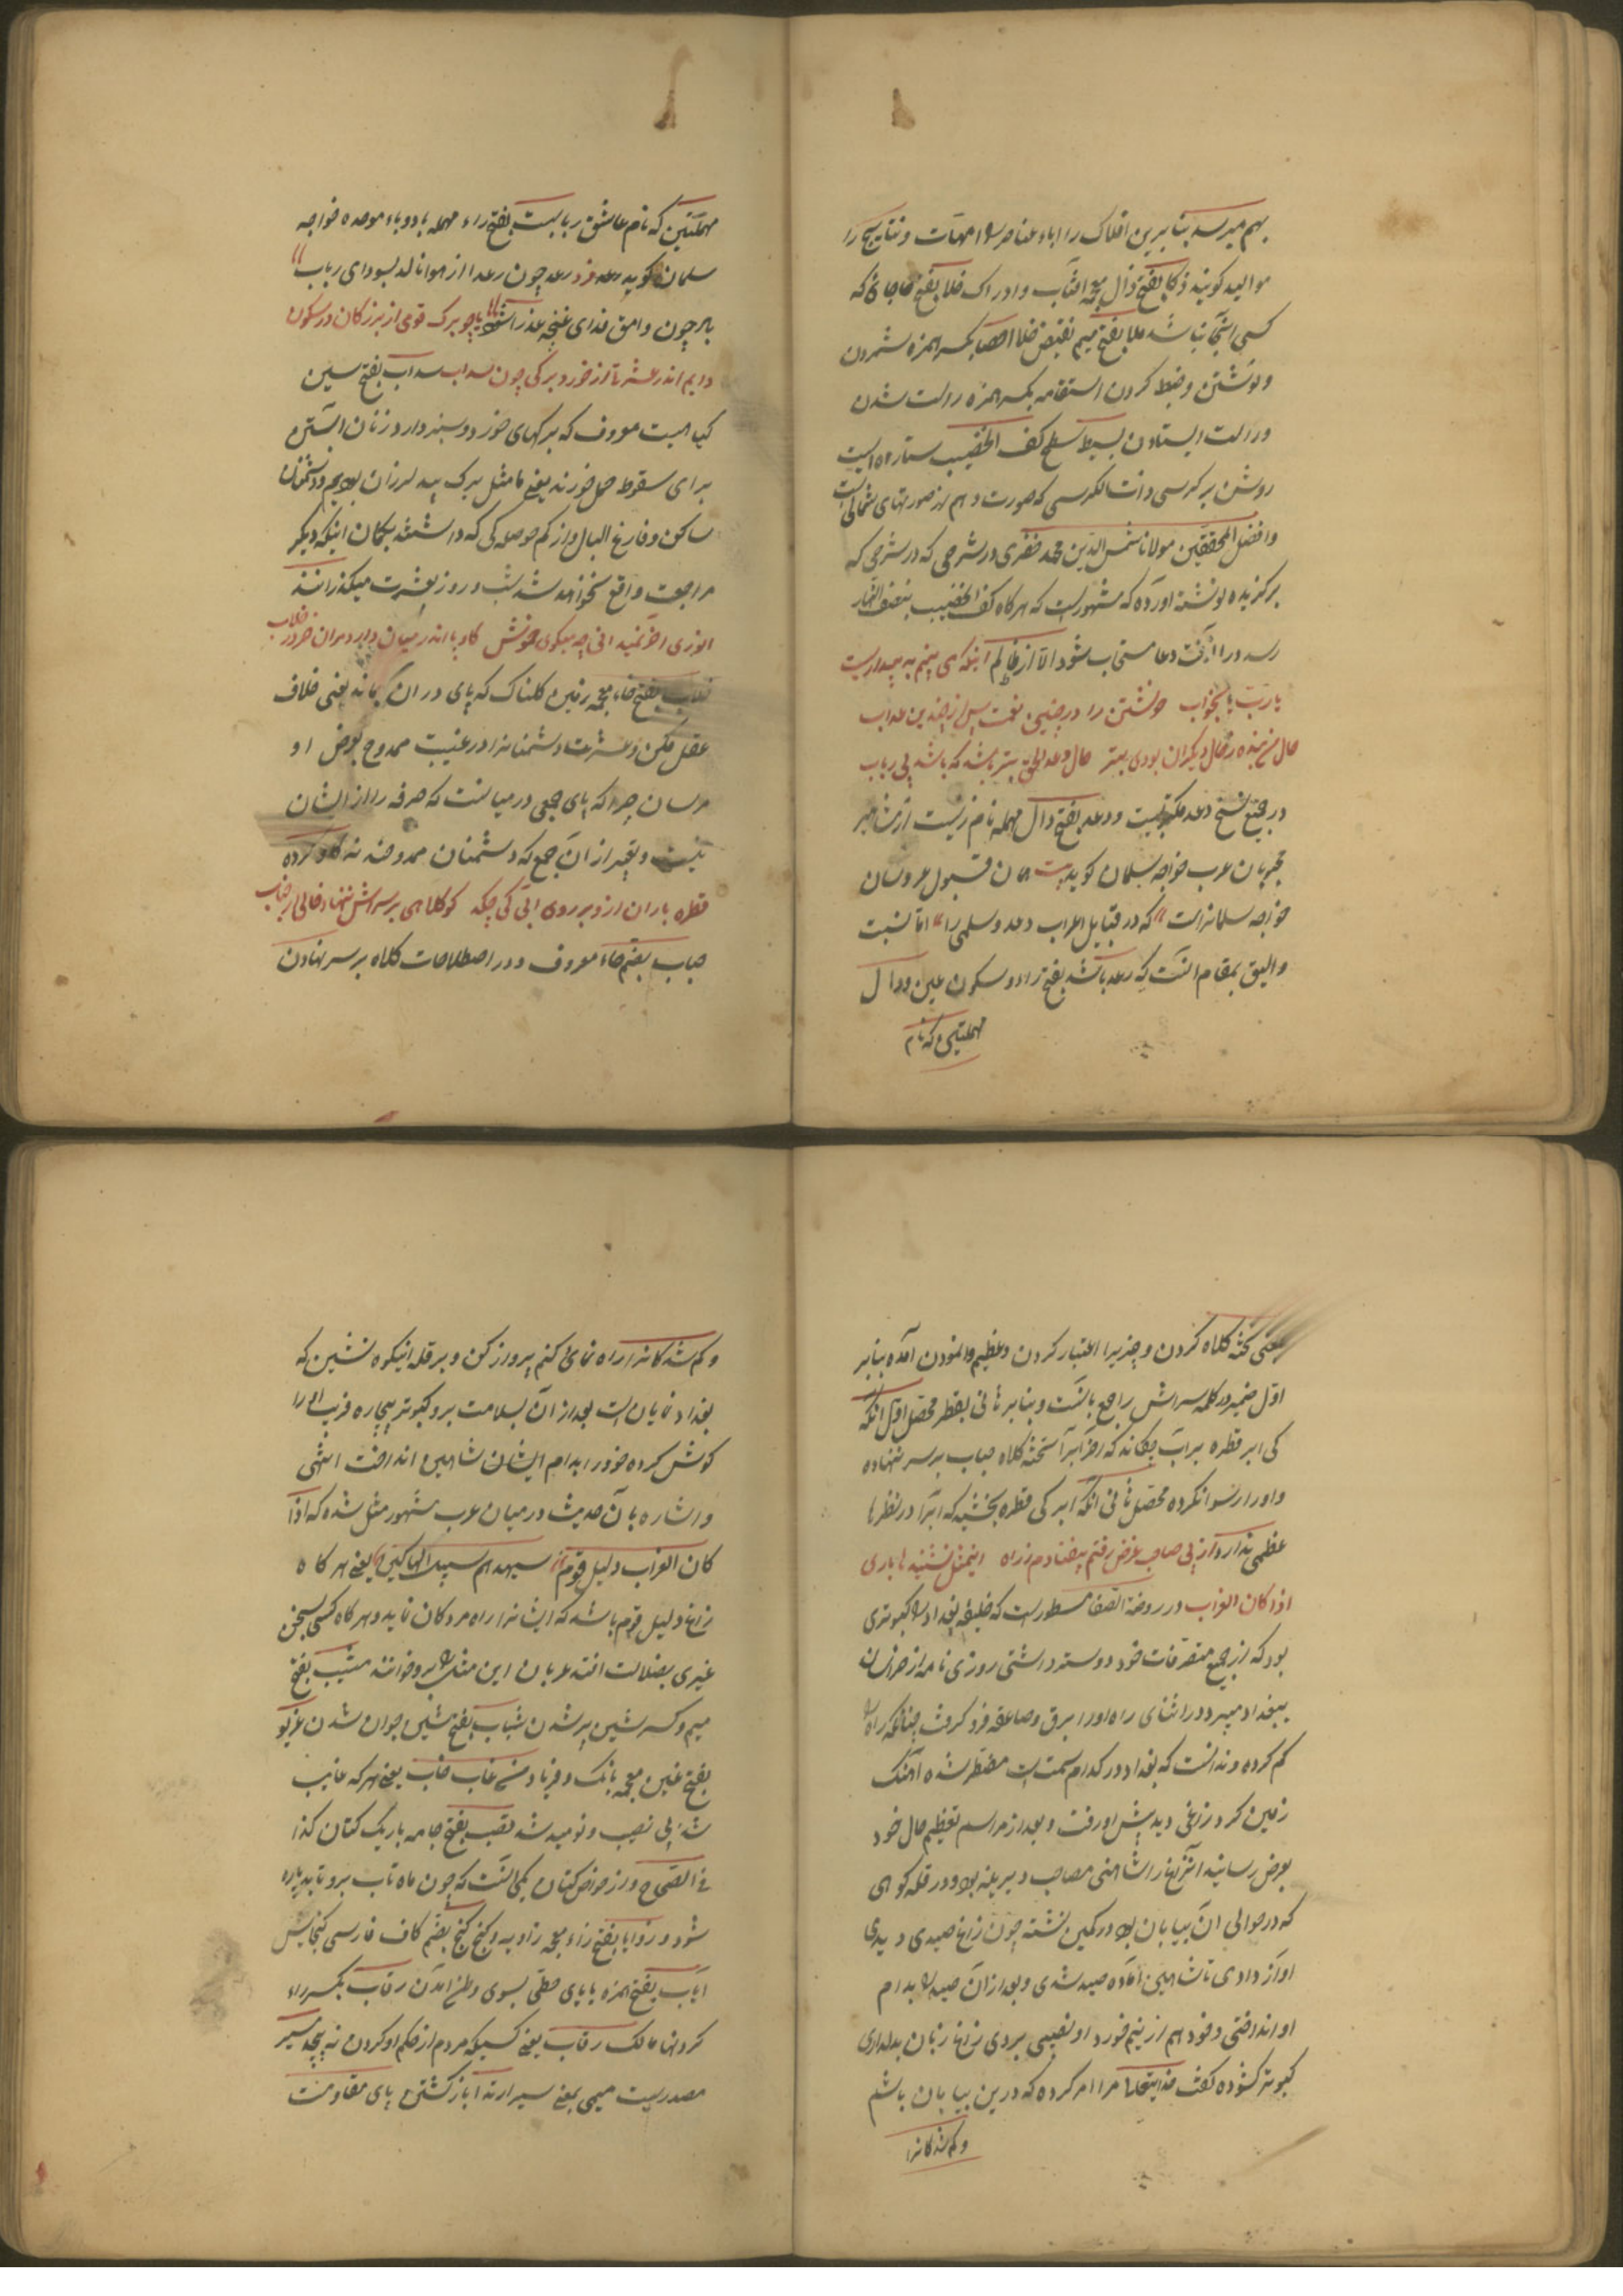 بهم میرسد بنابرین افلاک را اباء عناصر را امهات و نتایج را
موالید کویند ذکا بفتح ذال معجمه افتاب و ادراک خلا بفتح خا جائی که
کسی انجا نباشد ملا بفتح میم نقیض خلا احصا بکسر همزه شمردن
و نوشتن و ضبط کردن استقامه بکسر همزه راست شدن
و راست ایستادن بسیط سطح کف الخضیب ستاره ایست
روشن بر کرسی ذات الکرسی که صورت دهم از صورتهای شمالی است
و افضل المحققین مولانا شمس الدین محمد خفری در شرحی که در شرحی که
برکزیده نوشته اورده که مشهور است که هرکاه کف الخضیب بنصف النهار
رسد در آنوقت دعا مستجاب شود الا از ظالم اینکه می بینم به بیداریست
یارب یا بخواب خویشتن را در چنین نعمت پس از چندین عذاب
حال من بنده ز حال دیکران بودی بتر حال دعد ای بتر باشد که باشد بی رباب
در جمیع نسخ دعد مکتوبست و دعد بفتح دال مهمله نام زنیست از مشاهیر
خوبان عرب خواجه سلمان کوید بیت همان قبول عروسان
خواجه سلمانراست که در قبایل اعراب دعد و سلمی را اما نسبت
و الیق بمقام انست که رعد باشد بفتح راء و سکون عین و دال
مهملتین که نام
مهملتین که نام عاشق ربابست بفتح راء مهمله با دو باء موحده خواجه
سلمان کوید رعد چون رعد از هوا نالد بسودای رباب
باز چون وامق فدای غنچه عذرا شود یا چو برک قومی از بزرکان در سکون
دایم اندر عشرتا از خورد برکی چون سداب سداب بفتح سین
کیاهیست معروف که برکهای خورد و سبز دارد زنان آبستن
برای سقوط حمل خورند یعنی ما مثل برک بید لرزان بودیم و دشمنان
ساکن و فارغ البال و از کم حوصله کی که داشتند بکمان اینکه دیکر
مراجعت واقع نخواهد شد شب و روز بعشرت میکذرانند
انوری اخر نمیدانی چه میکوی خموش کاو پا اندر میان دارد مران خر در خلاب
خلاب بفتح خاء معجمه زمین کلناک که پای در ان بماند یعنی خلاف
عقل مکن و عشرت دشمنانرا در غیبت ممدوح بعرض او
مرسان چرا که پای جمعی درمیانست که صرفه را از ایشان
نیست و تعبیر از ان جمع که دشمنان ممدوحند به کاو کرده
قطره باران ازو بر روی ابی کی چکد کو کلاهی بر سرش ننهاد حالی از حباب
حباب بضم حاء معروف و در اصطلاحات کلاه بر سر نهادن
بمعنی تخته کلاه کردن و چیزیرا اعتبار کردن و عظیم وانمودن آمده بنابر
اول ضمیر در کلمه سرش راجع بانست و بنابر ثانی بقطره محصل اول انکه
کی ابر قطره بر اب چکاند که اخر ابر آ تخته کلاه حباب بر سر ننهاده
و او را رسوا نکرده محصل ثانی انکه ابر کی قطره بخشید که آنرا در نظرها
عظمی نداد از پی صاحب غرض رفتم بیفتادم ز راه این مثل نشنیده باری
اذا کان الغراب در روضة الصفا مسطور است که خلیفه بغداد را کبوتری
بود که از جمیع متصرفات خود دوستر داشتی روزی نامه از خراسان
ببغداد میبرد در اثنای راه او را برق و صاعقه فرو کرفت چنانکه راه را
کم کرده و ندانست که بغداد در کدام سمت است مضطر شده آهنک
زمین کرد زاغی دید پیش او رفت و بعد از مراسم تعظیم حال خود
بعرض رسانید انزاغ را شاهینی مصاحب دیرینه بود و در قله کوهی
که در حوالی ان بیابان بود در کمین نشسته چون زاغ صیدی دیدی
آواز دادی تا شاهین آماده صید شدی و بعد از آن صید را بدام
او انداختی و خود هم از نیم خورد او نصیبی بردی زاغ زبان بدلداری
کبوتر کشوده کفت خدایتعالی مرا امر کرده که درین بیابان باشم
و کم شدکانرا
و کم شدکانرا راه نمای کنم پرواز کن و بر قله اینکوه نشین که
بغداد نمایان است بعد از آن بسلامت برو کبوتر بیچاره فریب او را
کوش کرده خود را بدام ایشان شاهین انداخت انتهی
و اشاره بآن حدیث درمیان عرب مشهور مثل شده که اذا
کان الغراب دلیل قوم سیهدیهم سبیل الهالکین یعنی هرکاه
زاغ دلیل قوم باشد که ایشانرا راه مردکان نماید و هرکاه کسی بسخن
غیری بضلالت افتد عربان این مثل را برو خوانند مشیب بفتح
میم و کسر شین پیر شدن شباب بفتح شین جوان شدن غریو
بفتح غین معجمه بانک و فریاد من غاب خاب یعنی هرکه غایب
شد بی نصیب و نومید شد قصب بفتح جامه باریک کتان کذا
فی الصحاح و از خواص کتان یکی انست که چون ماه تاب برو تابد پاره
شود و زوایا بفتح زاء معجمه زاویه و کنج کنج بضم کاف فارسی کنجایش
ایاب بفتح همزه با یای حطی بسوی وطن آمدن رقاب بکسر راء
کردنها مالک رقاب یعنی کسیکه مردم از حکم او کردن نه پیچد مسیر
مصدریست میمی بمعنی سیر ارتداد باز کشتن پای مقاومت